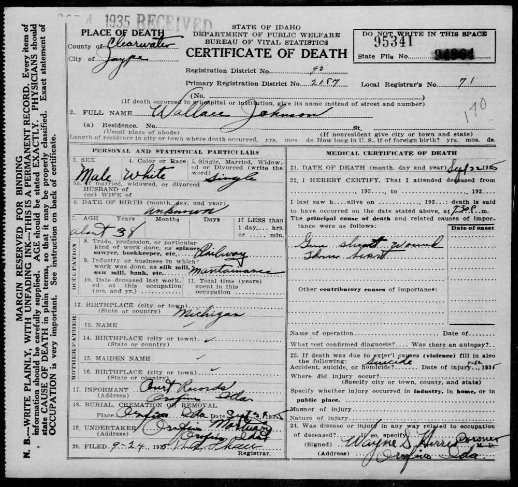 1935 RECEIVED
STATE OF IDAHO
DEPARTMENT OF PUBLIC WELFARE
BUREAU OF VITAL STATISTICS
CERTIFICATE OF DEATH
DO NOT WRITE IN THIS SPACE
95341
State File No.
PLACE OF DEATH
County of Clearwater
City of Jaype
Registration District No. 90
Primary Registration District No. 2187 Local Registrar's No. 71
(No.
(If death occurred in a hospital or institution, give its name instead of street and number)
170
2. FULL NAME Wallace Johnson
(a) Residence. No. St.
(Usual place of abode) (If nonresident give city or town and state)
Length of residence in city or town where death occurred. yrs. mos. ds. How long in U. S., if of foreign birth? yrs. mos. ds.
PERSONAL AND STATISTICAL PARTICULARS
3. SEX 4. Color or Race 5. Single, Married, Widowed, or Divorced (write the word)
Male White Single
5a. If married, widowed, or divorced
HUSBAND of
(or) WIFE of
6. DATE OF BIRTH (month, day and year)
unknown
7. AGE Years Months Days If LESS than
1 day, hrs.
or min.
about 38
8. Trade, profession, or particular kind of work done, as spinner, sawyer, bookkeeper, etc. Railway
9. Industry or business in which work was done, as silk mill, saw mill, bank, etc. Maintainance
10. Date deceased last worked at this occupation (mo. and yr.) 11. Total time (years) spent in this occupation
OCCUPATION
12. BIRTHPLACE (city or town)
(State or country) Michigan
13. NAME
14. BIRTHPLACE (city or town)
(State or country)
15. MAIDEN NAME
16. BIRTHPLACE (city or town)
(State or country)
MOTHER FATHER
17. INFORMANT Court Records
(Address) Orofino Ida
18. BURIAL CREMATION OR REMOVAL
Place Orofino Ida Date
19. UNDERTAKER Orofino Mortuary
(Address) Orofino Ida
20. FILED 9-24, 1935
Registrar.
MEDICAL CERTIFICATE OF DEATH
21. DATE OF DEATH (month, day and year)
22. I HEREBY CERTIFY, That I attended deceased from
, 192 , to , 192
I last saw h alive on , 192 , death is said
to have occurred on the date stated above, at m.
The principal cause of death and related causes of importance were as follows: Date of onset
Gun shot wound
Thru heart
Other contributory causes of importance:
Name of operation Date of
What test confirmed diagnosis? Was there an autopsy?
23. If death was due to external causes (violence) fill in also the following:
Accident, suicide, or homicide? Suicide Date of injury , 193
Where did injury occur?
(Specify city or town, county, and state)
Specify whether injury occurred in industry, in home, or in public place.
Manner of injury
Nature of injury
24. Was disease or injury in any way related to occupation of deceased? If so, specify
(Signed) Wayne S. Harris Coroner
M. D.
(Address) Orofino Ida
MARGIN RESERVED FOR BINDING
N. B.—WRITE PLAINLY, WITH UNFADING INK—THIS IS A PERMANENT RECORD. Every item of
information should be carefully supplied. AGE should be stated EXACTLY. PHYSICIANS should
state CAUSE OF DEATH in plain terms, so that it may be properly classified. Exact statement of
OCCUPATION is very important. See instruction on back of certificate.